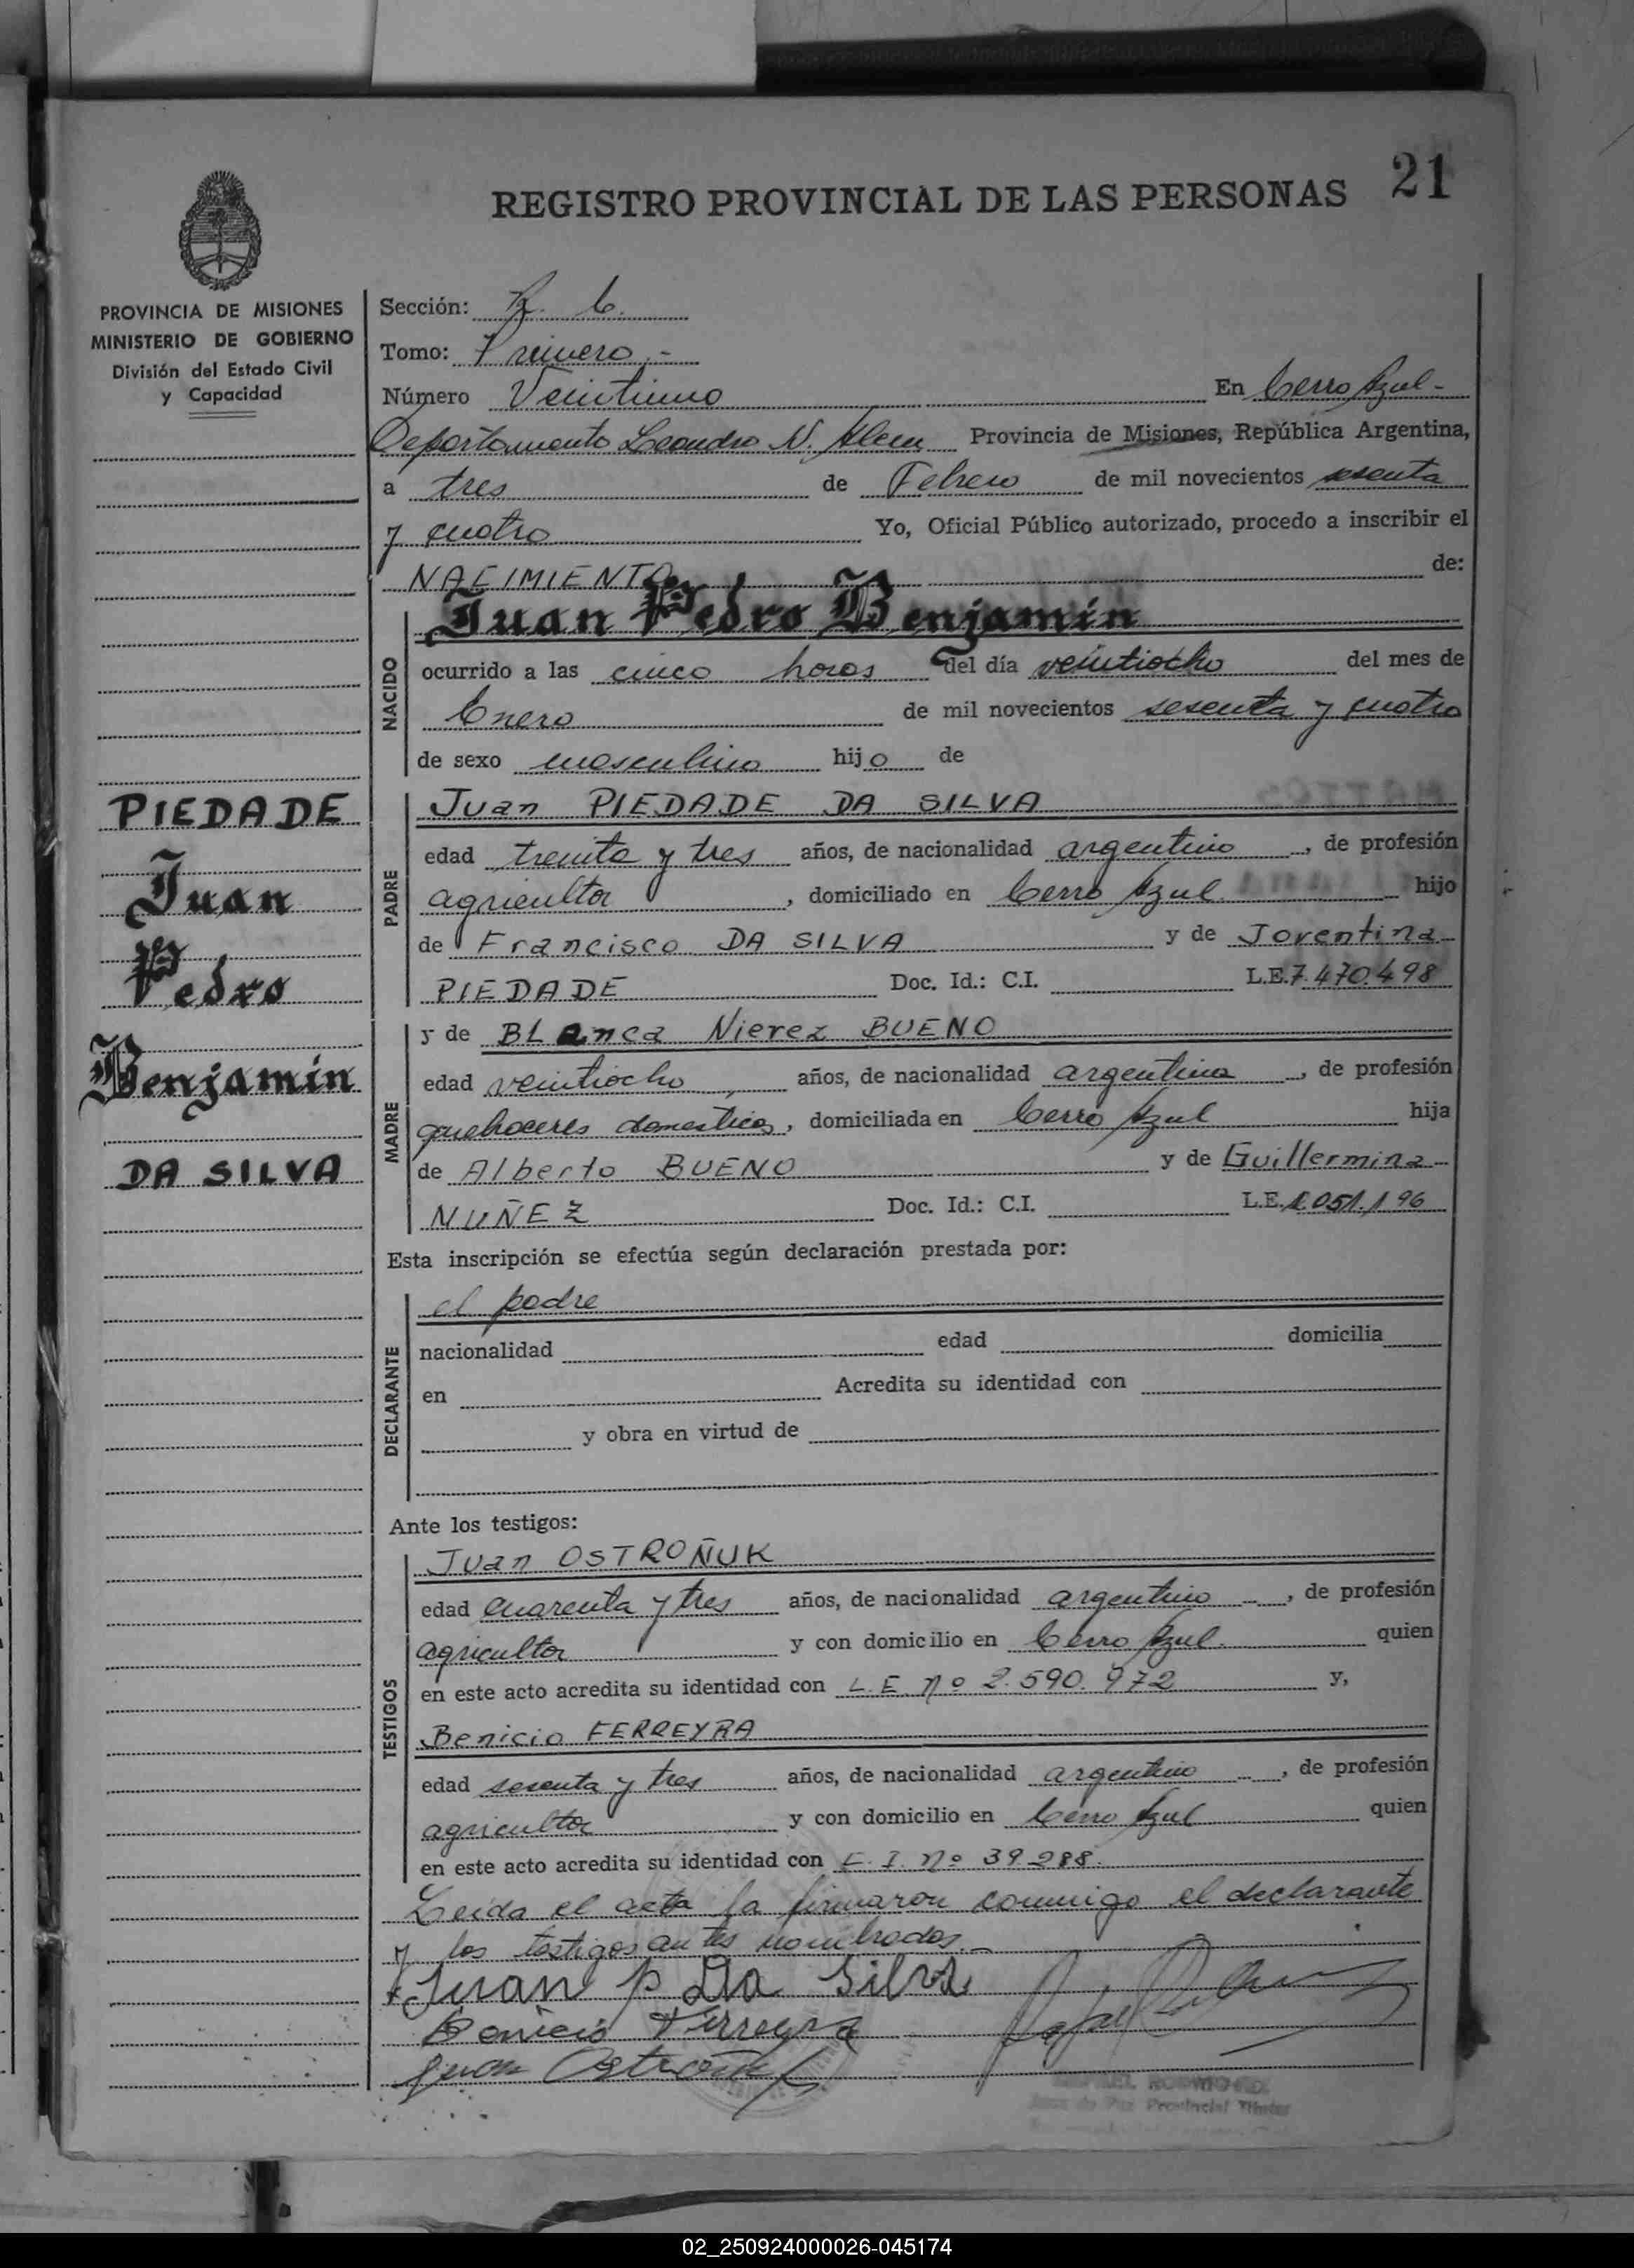 21
REGISTRO PROVINCIAL DE LAS PERSONAS
PROVINCIA DE MISIONES
MINISTERIO DE GOBIERNO
División del Estado Civil
y Capacidad
PIEDADE
Juan
Pedro
Benjamín
DA SILVA
Sección:
Tomo: Primero.-
Número Veintiuno En Cerro Azul-
Departamento Leandro N. Alem Provincia de Misiones, República Argentina,
a tres de Febrero de mil novecientos sesenta
y cuatro Yo, Oficial Público autorizado, procedo a inscribir el
NACIMIENTO de:
NACIDO
Juan Pedro Benjamín
ocurrido a las cinco horas del día veintiocho del mes de
Enero de mil novecientos sesenta y cuatro
de sexo masculino hijo de
PADRE
Juan PIEDADE DA SILVA
edad treinta y tres años, de nacionalidad argentino, de profesión
agricultor, domiciliado en Cerro Azul. hijo
de Francisco DA SILVA y de Joventina
PIEDADE Doc. Id.: C.I. L.E. 7.470.498
MADRE
y de BLanca Nierez BUENO
edad veintiocho años, de nacionalidad argentina, de profesión
quehaceres domesticos, domiciliada en Cerro Azul hija
de Alberto BUENO y de Guillermina
NUÑEZ Doc. Id.: C.I. L.E. 1.051.196
Esta inscripción se efectúa según declaración prestada por:
DECLARANTE
el padre
nacionalidad edad domicilia
en Acredita su identidad con
y obra en virtud de
Ante los testigos:
TESTIGOS
Juan OSTROÑUK
edad cuarenta y tres años, de nacionalidad argentino, de profesión
agricultor y con domicilio en Cerro Azul. quien
en este acto acredita su identidad con L.E. nº 2.590.972 y,
Benicio FERREYRA
edad sesenta y tres años, de nacionalidad argentino, de profesión
agricultor y con domicilio en Cerro Azul quien
en este acto acredita su identidad con C.I. nº 39288.
Leida el acta la firmaron conmigo el declarante
y los testigos antes nombrados.-
Juan P Da Silva
Benicio Ferreyra
Juan Ostroñuk
Juez de Paz Provincial Titular
02_250924000026-045174